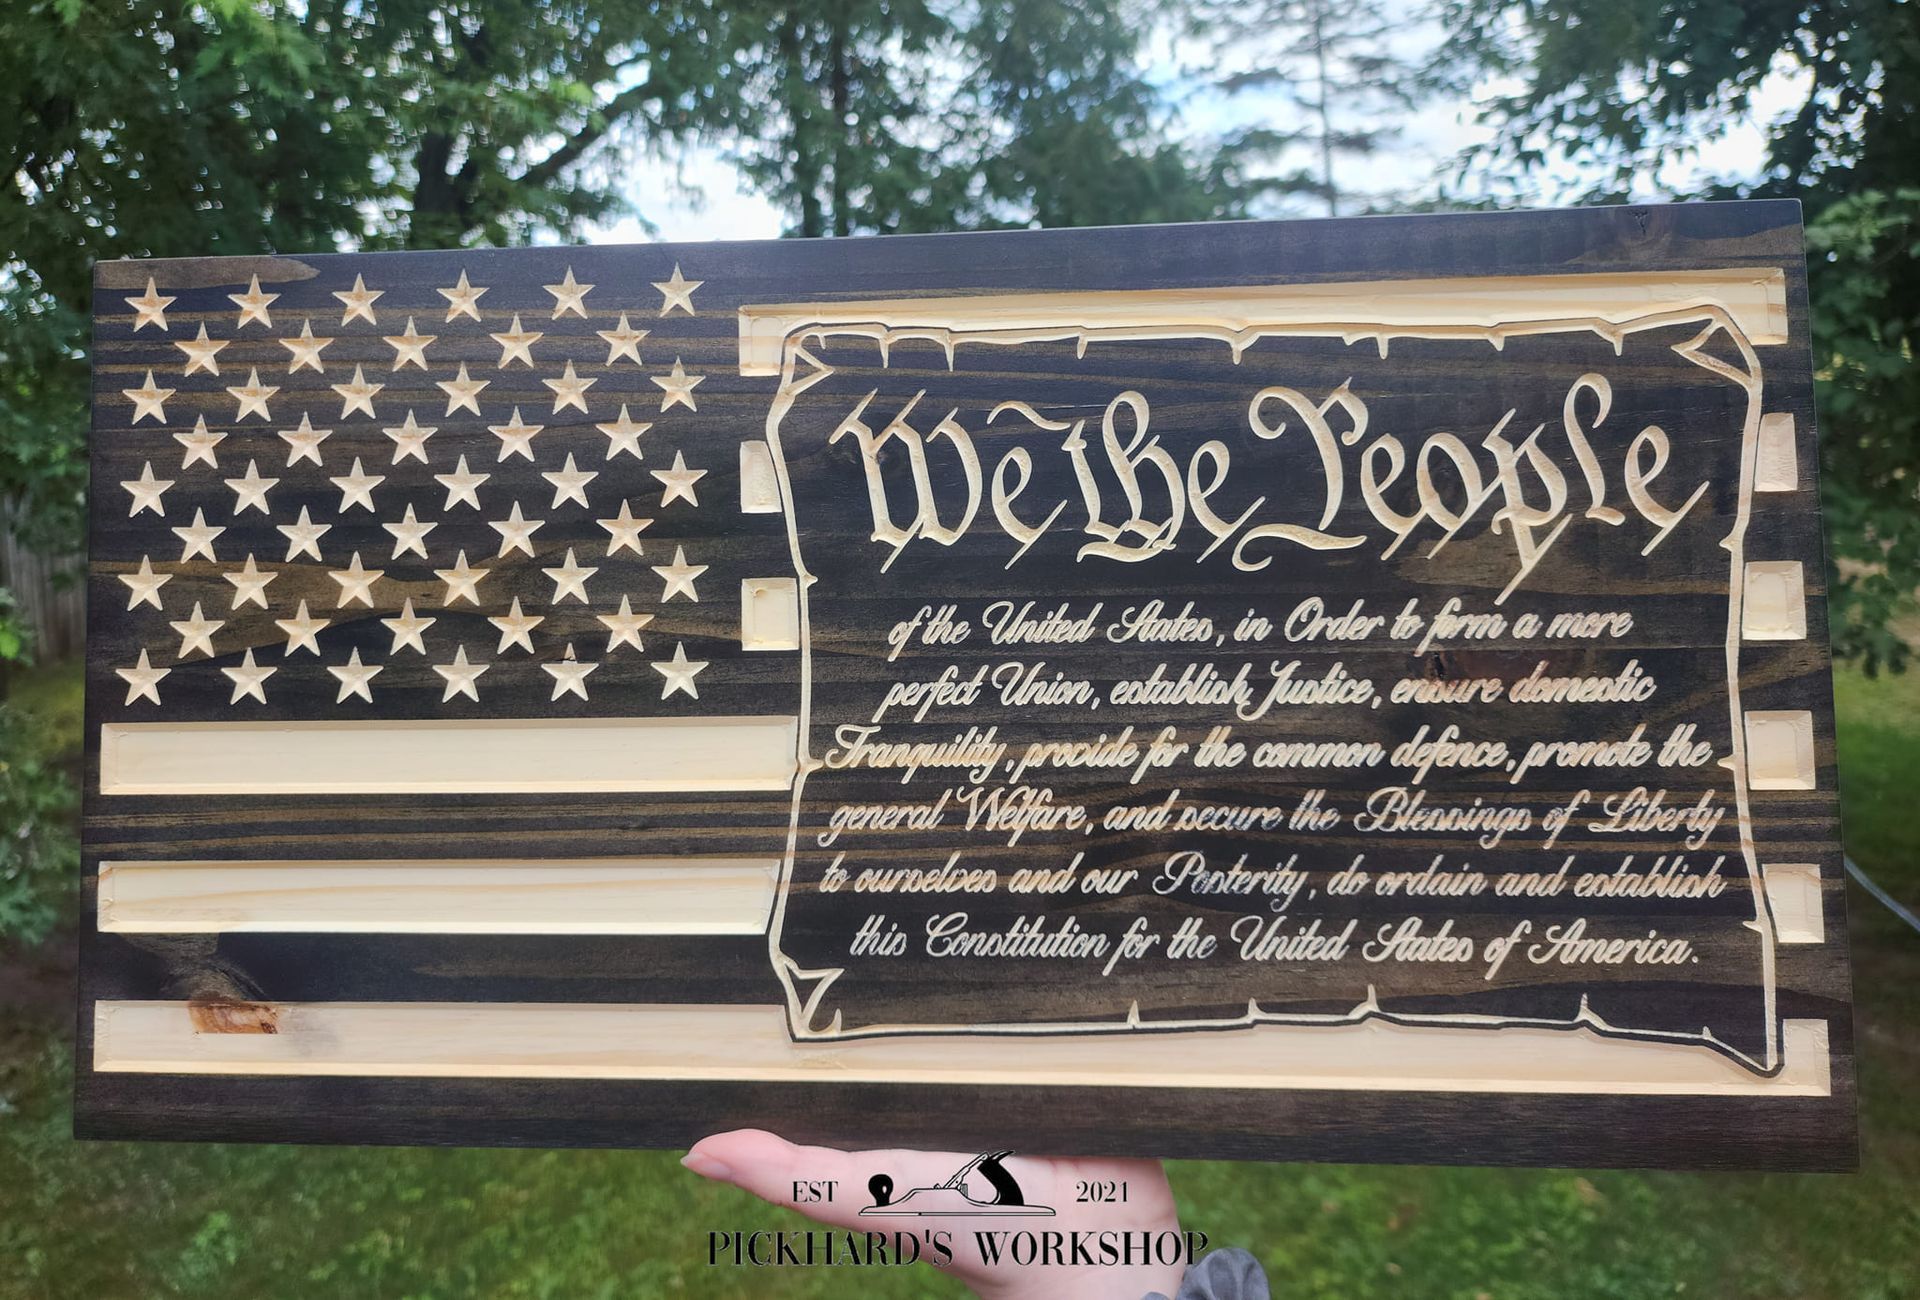 We the People
of the United States, in Order to form a more
perfect Union, establish Justice, ensure domestic
Tranquility, provide for the common defence, promote the
general Welfare, and secure the Blessings of Liberty
to ourselves and our Posterity, do ordain and establish
this Constitution for the United States of America.
EST 2021
PICKHARD'S WORKSHOP